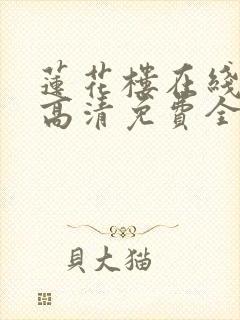 蓮花樓在綫
高清免費全
貝大猫